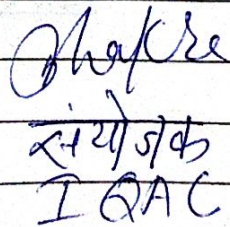 संयोजक
IQAC